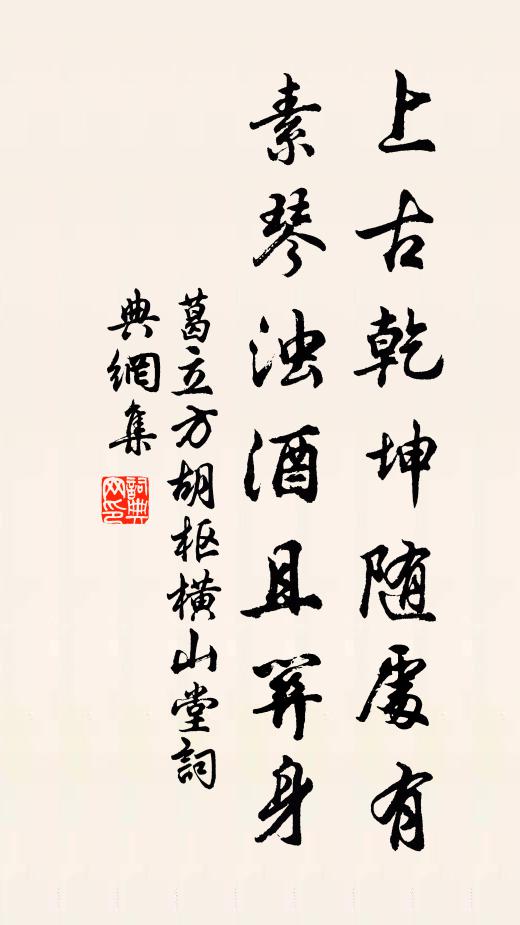 上古乾坤随處有
素琴浊酒且身
葛立方胡枢橫山堂詞
典網集
詞典
网印